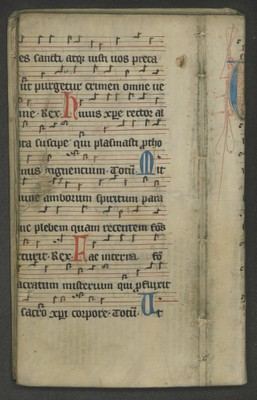 es sancti atqi iusti uos preca
ut purgetur crimen omne ue
ine. Rex. Huius xpe rector al
ta suscipe qui plasmasti ptho
nus iugnencium. Totū. Mit
nine amborum spiritum para
ue plebem quam recentem fōs
Rex. Fac interna fō
acratum misterium qui
sacro xpi corpore. Totū. Ut